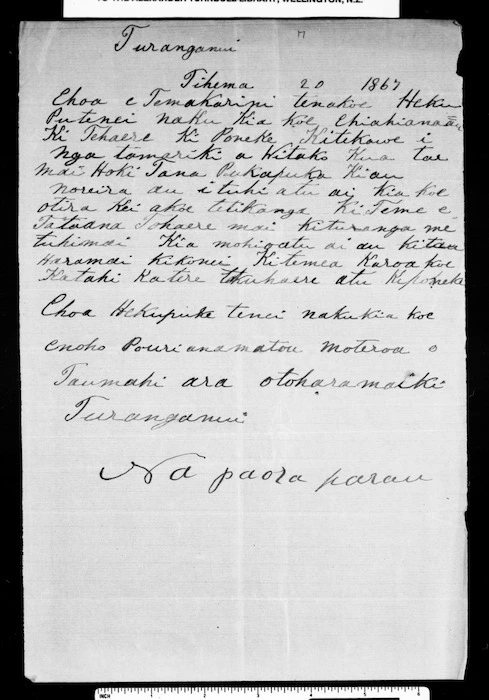 TO THE ALEXANDER TURNBULL LIBRARY, WELLINGTON, N.Z.
Turanganui
Tihema 20 1867
Ehoa e Temakarini tenakoe Heku
Putenei naku Kia koe Ehiahianaau
Ki Tehaere Ki Poneke Kitekawe i
nga tamariki a Hitako Kua tae
mai Hoki Tana Pukapuka Kiau
noreira au i tuhi atu ai Kia koe
otira Kei akoe tetikanga Ki Teme e
Tataana Tohaere mai kituranga me
tuhimai Kia mohioatu ai au kitau
Haramai kikonei Kitemea Karoa koe
Katahi Katire haere atu Kiponeke
Ehoa Hekupuke tenei nakukia koe
enoho Pourianamatou moteroa o
Taumahi ara otoharamaiki
Turanganui
Na paora parau
INCH 1 2 3 4